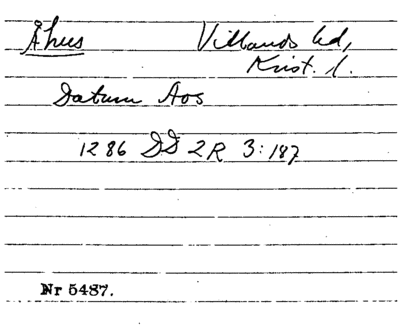 Åhus Villands hd,
Krist. l.
Datum Aos
1286 DD 2R 3:187
Nr 5487.